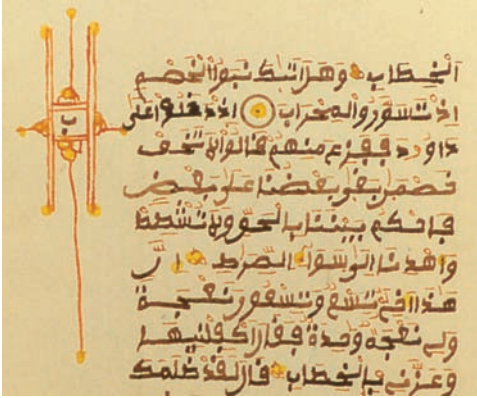 الخطاب وهل اتيك نبؤا الخصم
اذ تسوروا المحراب اذ دخلوا على
داود ففزع منهم قالوا لا تخف
خصمن بغى بعضنا على بعض
فاحكم بيننا بالحق ولا تشطط
واهدنا الى سوا الصرط ان
هذا اخى تسع وتسعون نعجة
ولى نعجة وحدة فقال اكفلنيها
وعزنى فى الخطاب قال لقد ظلمك
ب